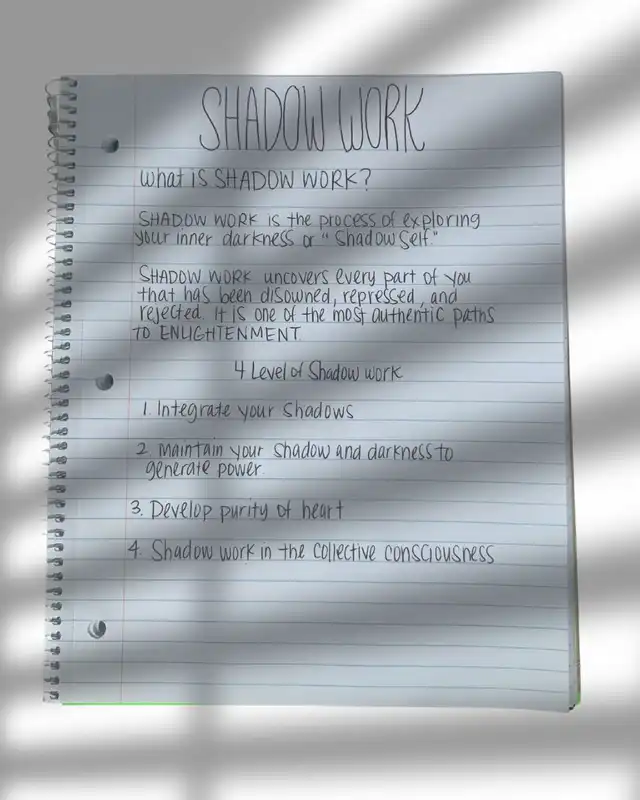 SHADOW WORK
What is SHADOW WORK?
SHADOW WORK is the process of exploring
your inner darkness or "Shadow Self."
SHADOW WORK uncovers every part of you
that has been disowned, repressed, and
rejected. It is one of the most authentic paths
TO ENLIGHTENMENT.
4 Level of Shadow work
1. Integrate your Shadows
2. Maintain your Shadow and darkness to
generate power.
3. Develop purity of heart
4. Shadow work in the collective consciousness